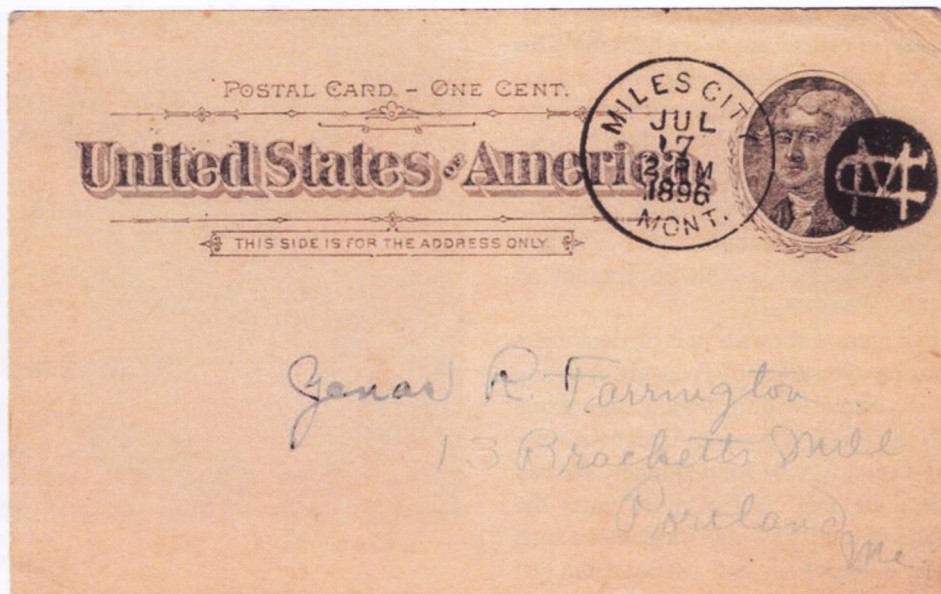 POSTAL CARD. - ONE CENT.
United States of America.
THIS SIDE IS FOR THE ADDRESS ONLY.
MILES CITY
JUL
17
1896
MONT.
MC
R. Farrington
13 Bracketts
Portland
Me.